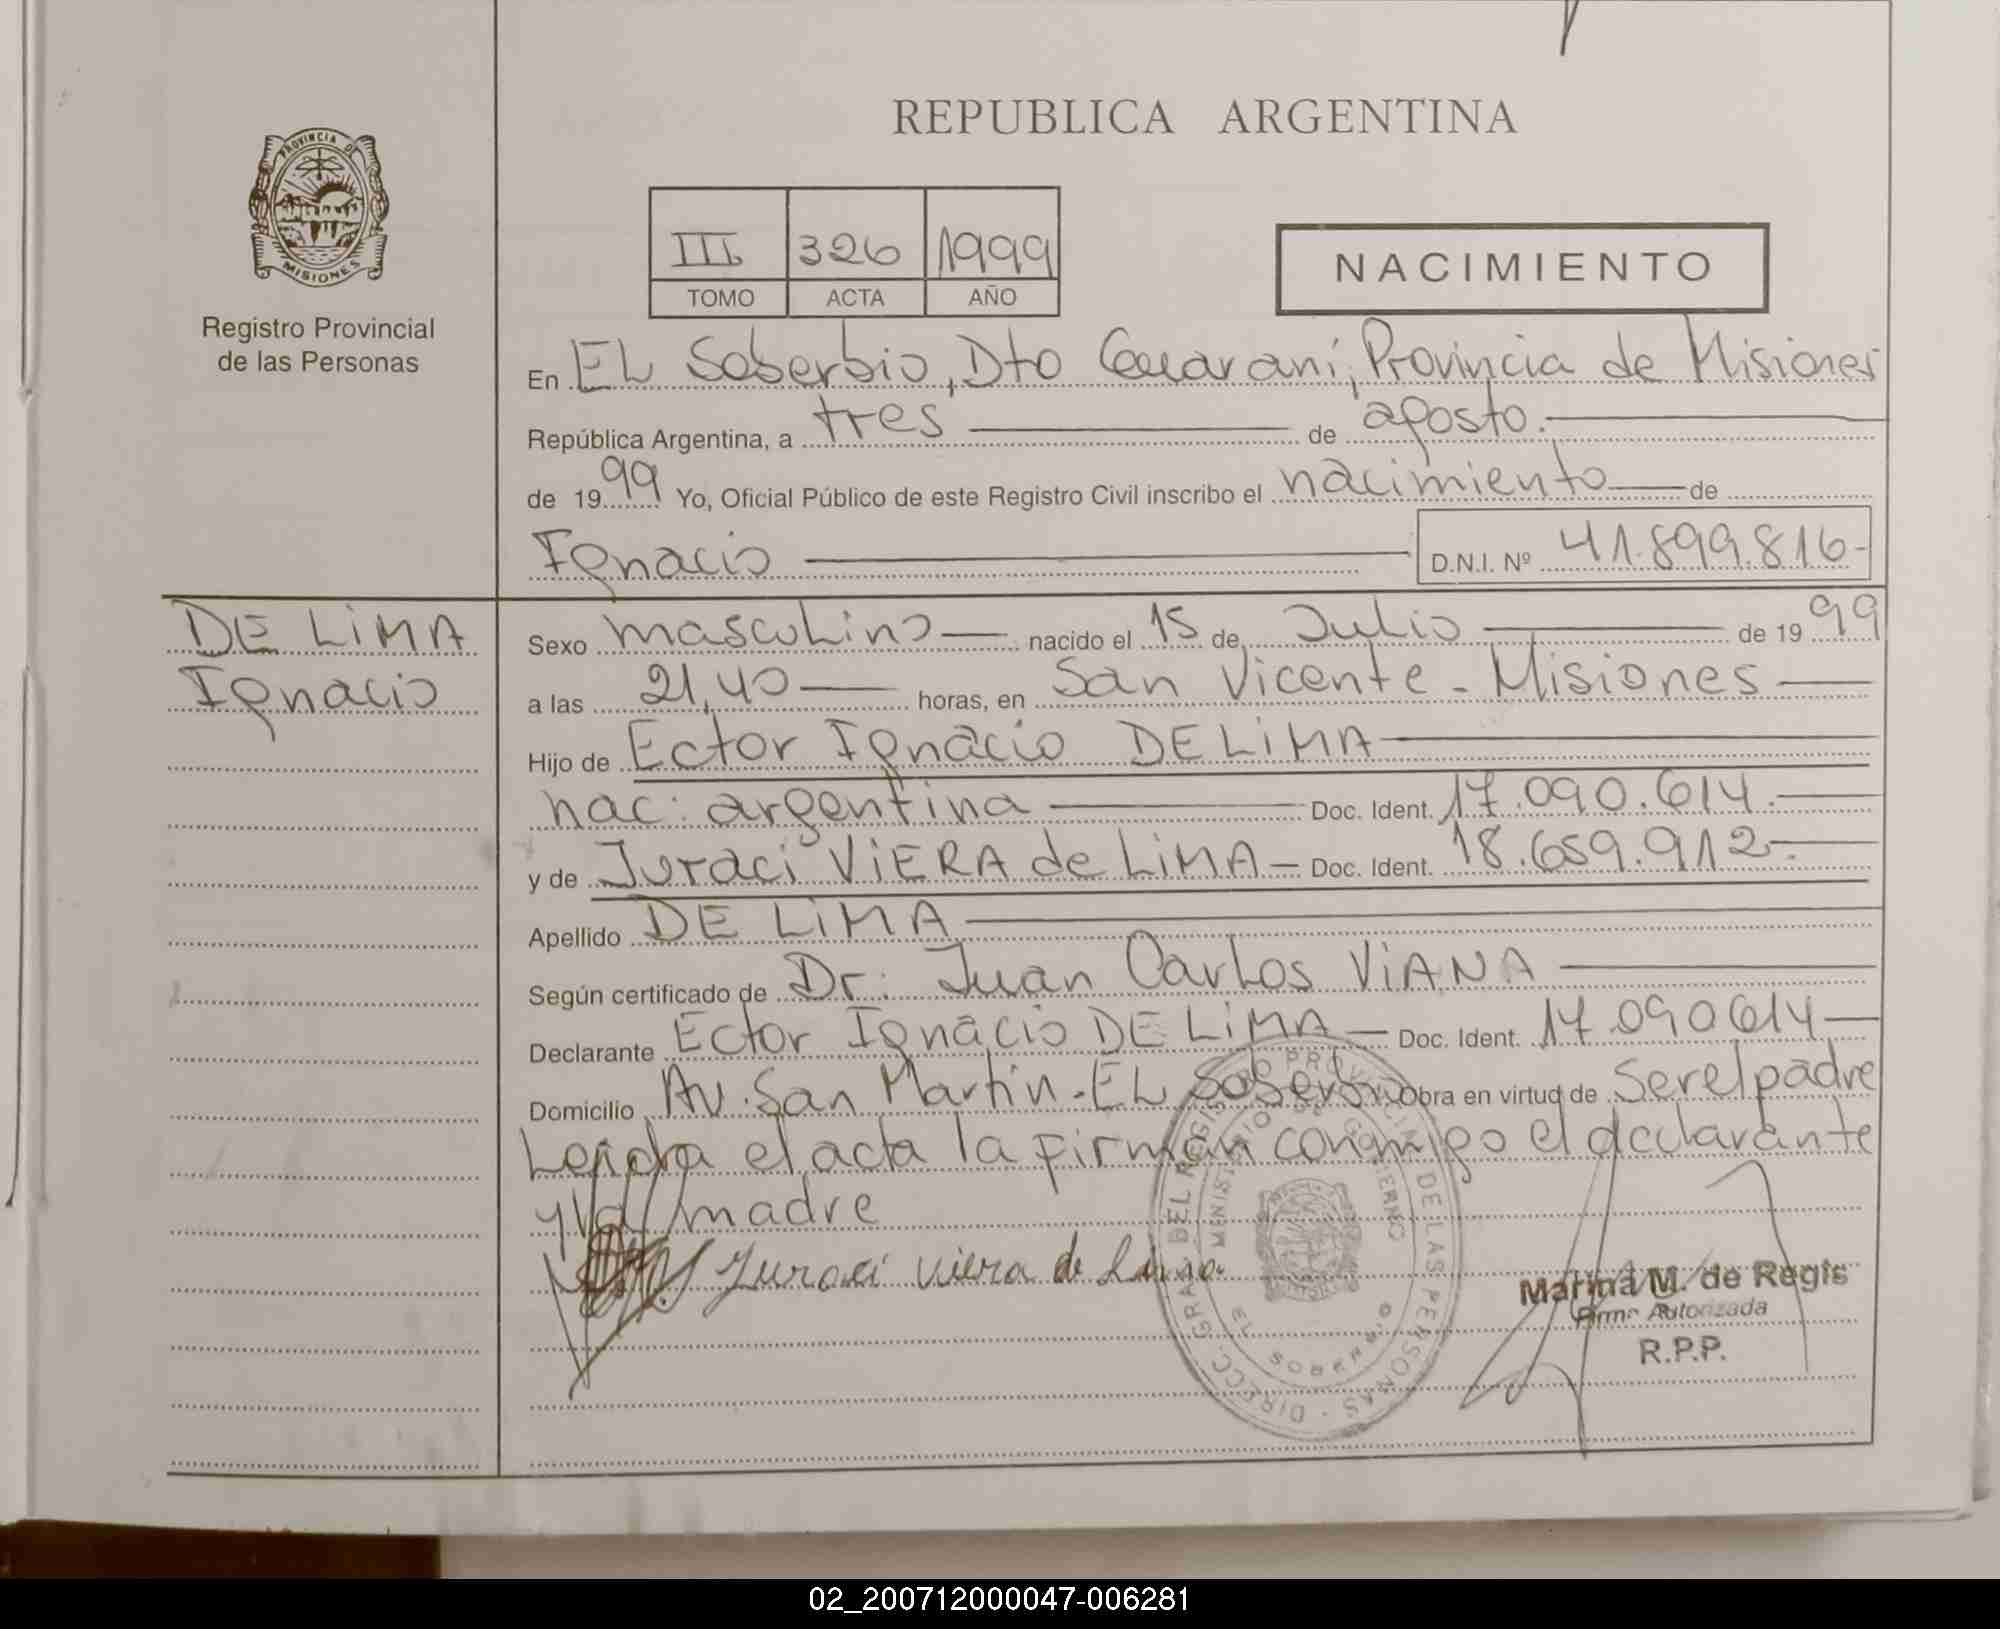 REPUBLICA ARGENTINA
PROVINCIA DE
MISIONES
Registro Provincial
de las Personas
III 326 1999
TOMO ACTA AÑO
NACIMIENTO
En EL Soberbio, Dto Guaraní, Provincia de Misiones
República Argentina, a tres de agosto.
de 1999 Yo, Oficial Público de este Registro Civil inscribo el nacimiento de
Ignacio D.N.I. Nº 41.899.816-
DE LiMA
Ignacio
Sexo masculino nacido el 15 de Julio de 1999
a las 21,40 horas, en San Vicente - Misiones
Hijo de Ector Ignacio DE LiMA
nac: argentina Doc. Ident. 17.090.614.
y de Juraci ViERA de LiMA Doc. Ident. 18.659.912-
Apellido DE LiMA
Según certificado de Dr: Juan Carlos ViANA
Declarante Ector Ignacio DE LiMA Doc. Ident. 17.090614
Domicilio Av. San Martín - EL Soberbio Obra en virtud de ser el padre
Leída el acta la firman conmigo el declarante
y la madre
Juraci Viera de Lima
DIRECC. GRAL. DEL REGISTRO PROVINCIAL DE LAS PERSONAS
MINISTERIO DE GOBIERNO
EL SOBERBIO
Marina M. de Regis
Firma Autorizada
R.P.P.
02_200712000047-006281